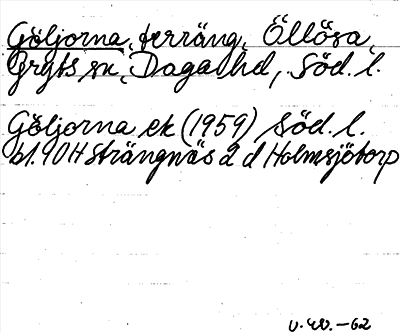 Göljorna, terräng, Öllösa,
Gryts sn, Daga hd, Söd. l.
Göljorna ek (1959) Söd. l.
bl. 90H Strängnäs 2 d Holmsjötorp